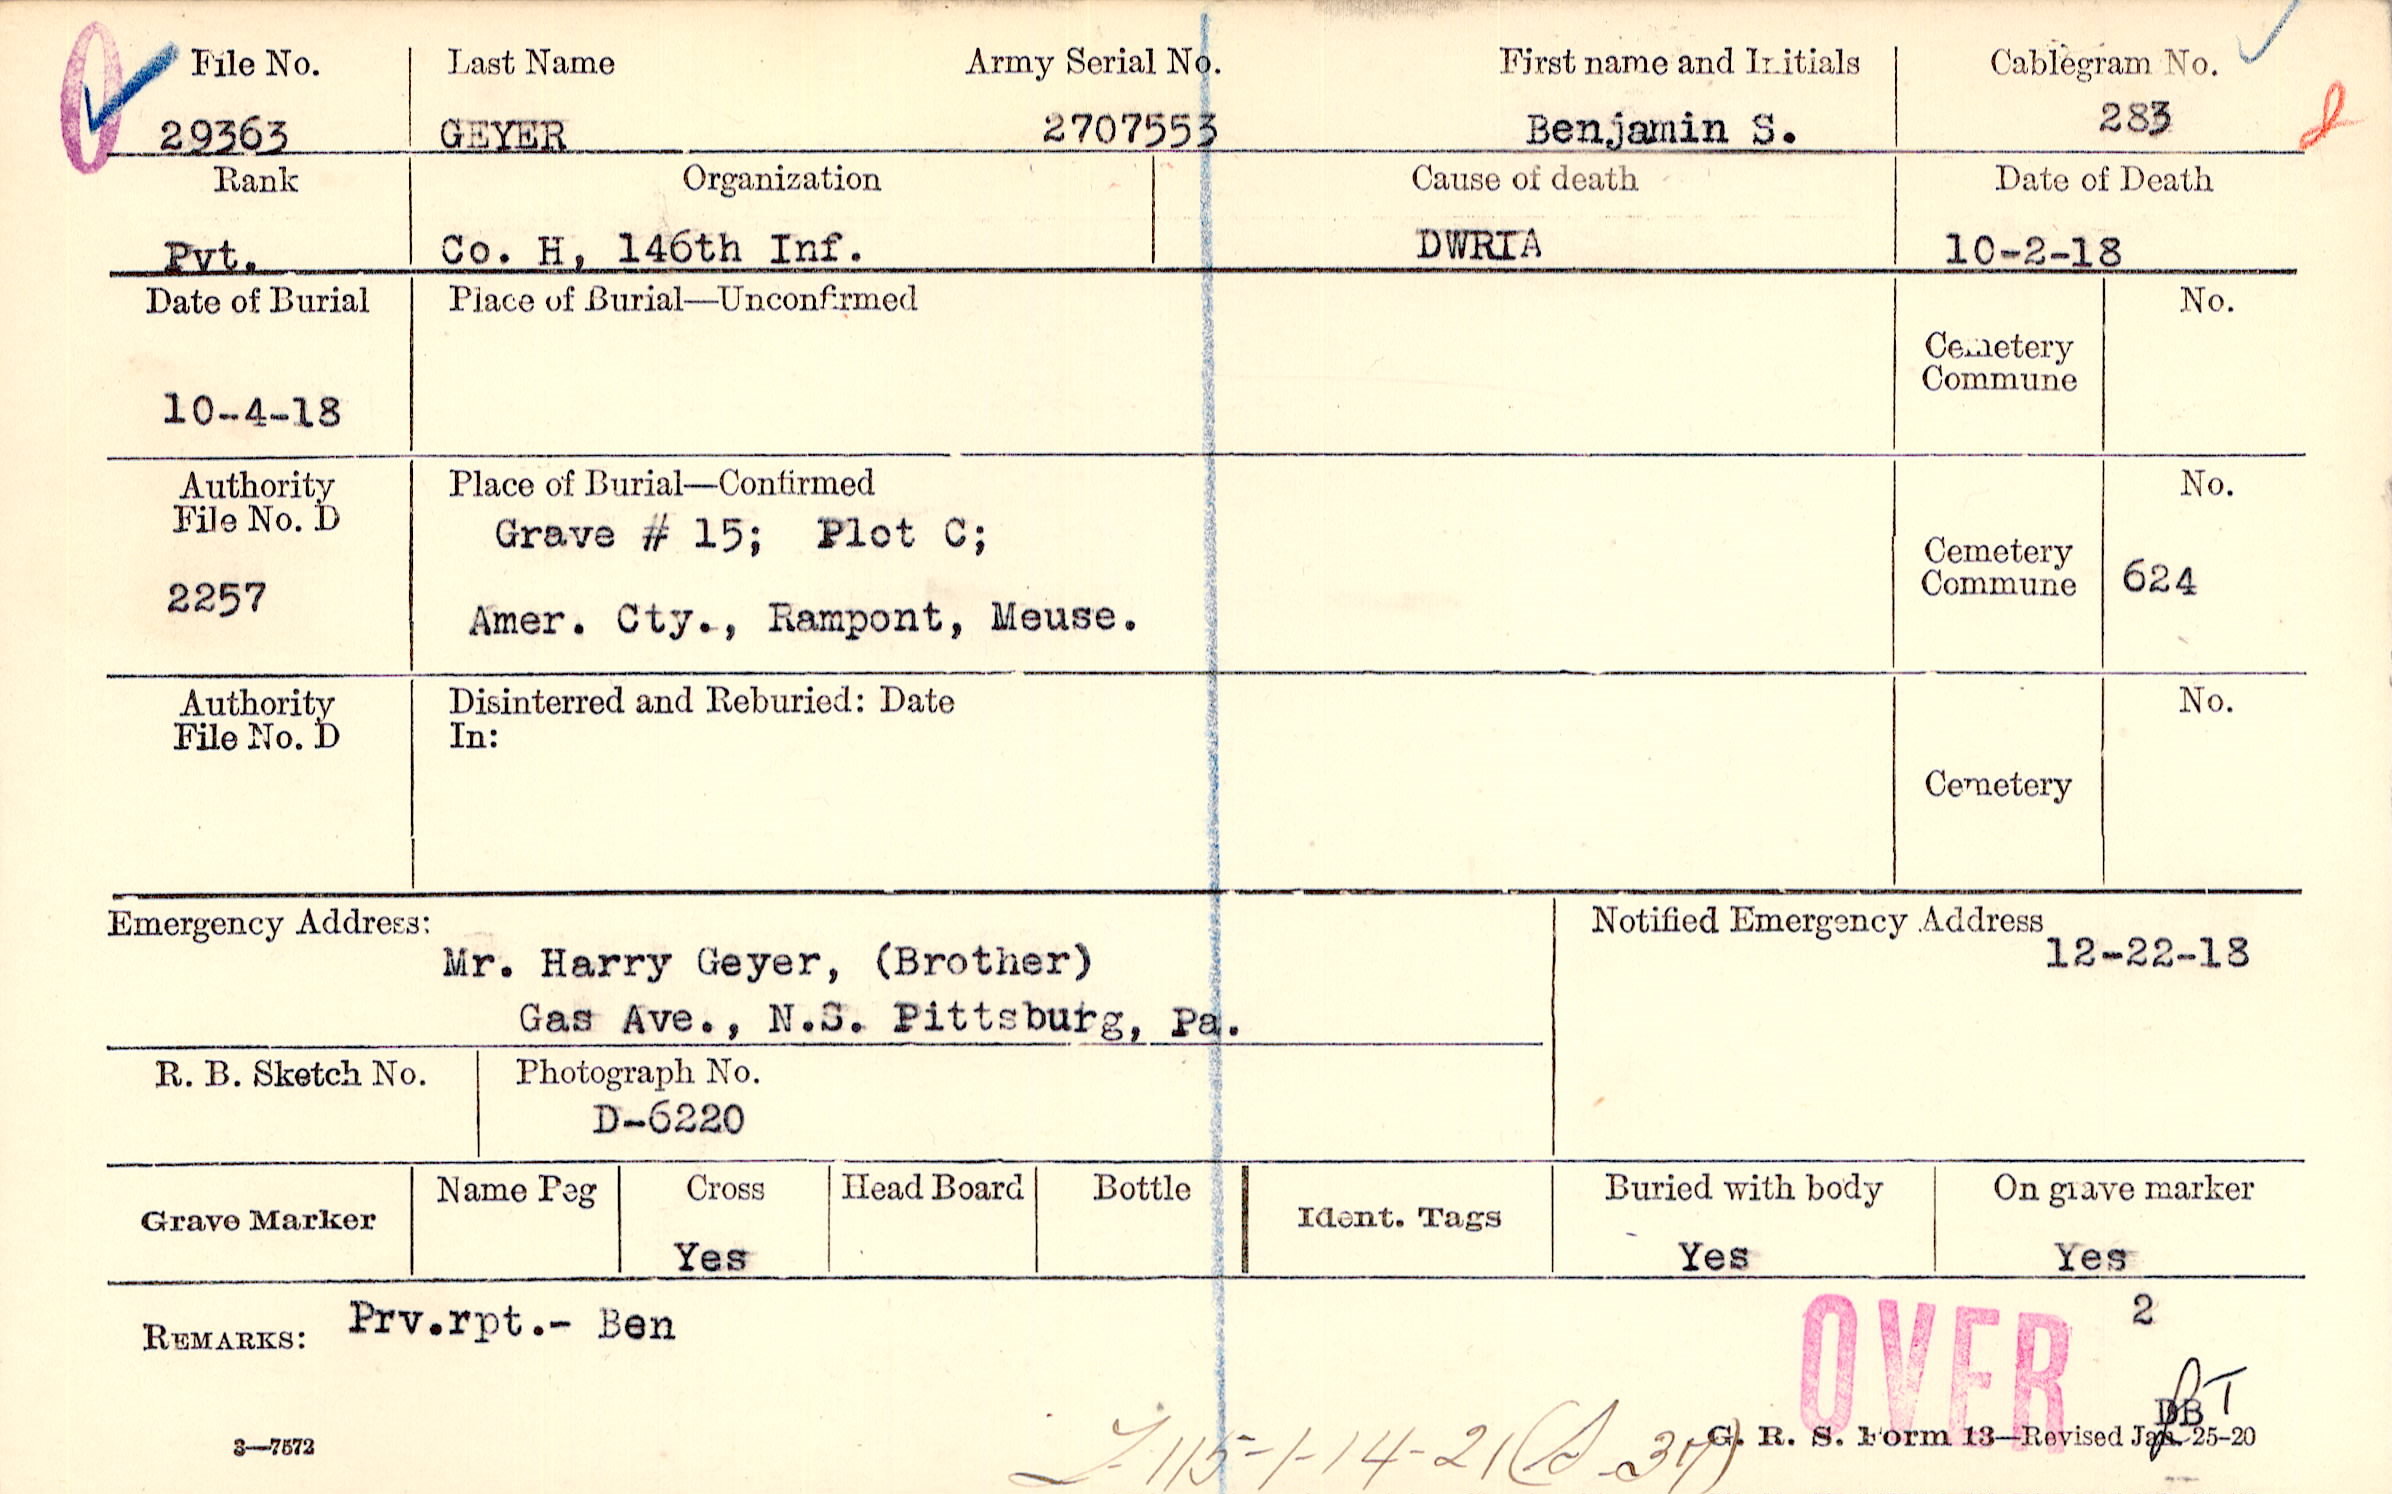 File No. Last Name Army Serial No. First name and Initials Cablegram No.
29363 GEYER 2707553 Benjamin S. 283
Rank Organization Cause of death Date of Death
Pvt. Co. H, 146th Inf. DWRIA 10-2-18
Date of Burial Place of Burial—Unconfirmed No.
Cemetery
Commune
10-4-18
Authority Place of Burial—Confirmed No.
File No. D
Grave # 15; Plot C;
Cemetery
Commune 624
2257
Amer. Cty., Rampont, Meuse.
Authority Disinterred and Reburied: Date No.
File No. D In:
Cemetery
Emergency Address: Notified Emergency Address
Mr. Harry Geyer, (Brother) 12-22-18
Gas Ave., N.S. Pittsburg, Pa.
R. B. Sketch No. Photograph No.
D-6220
Name Peg Cross Head Board Bottle Buried with body On grave marker
Grave Marker Ident. Tags
Yes Yes Yes
2
REMARKS: Prv.rpt.- Ben
OVER
DB
3—7572 G. R. S. Form 13—Revised Jan. 25-20
115-1-14-21